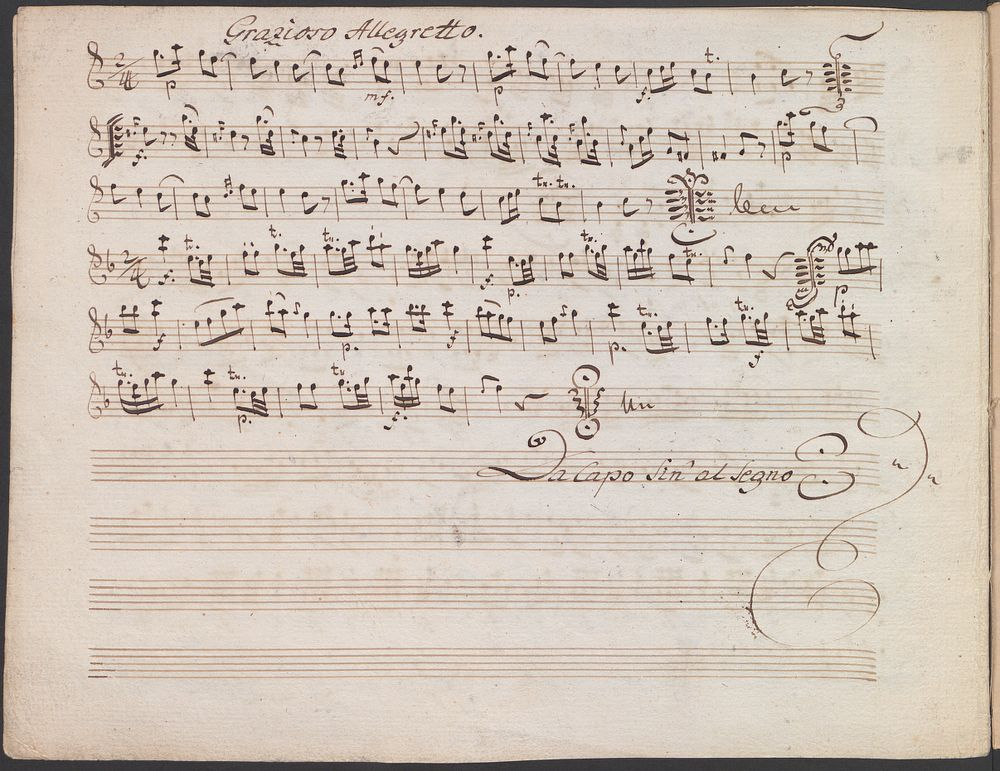 Grazioso Allegretto.
2/4 p mf. p f. t.
f. p
tr. tr.
2/4 f. t. t. tr. p. tr. tr. p
f p. f p. tr. tr. f
tr. tr. p. tr. f.
Da Capo Sin' al Segno